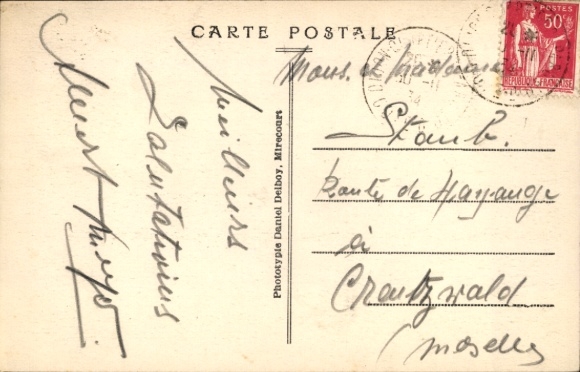 CARTE POSTALE
POSTES
50c
REPUBLIQUE FRANÇAISE
Meilleurs
Salutations
Phototypie Daniel Delboy, Mirecourt
Mons. et Madame
Staub.
Route de Hayange
à
Creutzwald
(Moselle